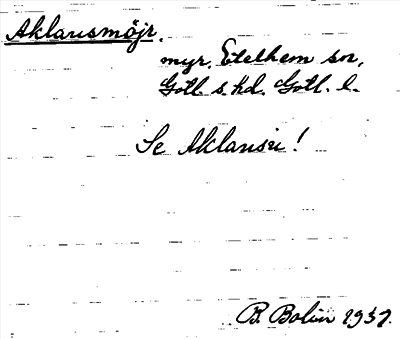 Aklausmöjr.
myr. Etelhem sn,
Gotl. s. hd. Gotl. l.
Se Aklausu!
B. Bolin 1937.